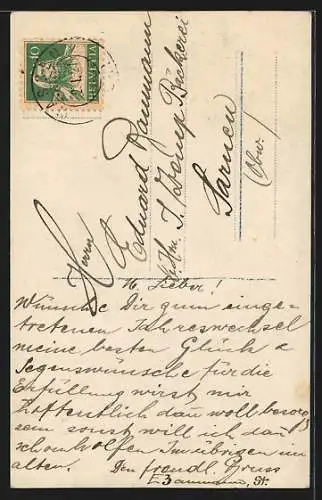 10
HELVETIA
Herrn
Eduard Baumann
b. Hrn. J. Bäckerei
Sarnen
(Obw.)
M. Lieber!
Wünsche Dir zum einge-
tretenen Jahreswechsel
meine besten Glück &
Segenswünsche für die
Erfüllung wirst mir
hoffentlich dan woll besorgt
sein sonst will ich da
schon helfen Im übrigen im
alten. Den freundl. Gruss
E. Baumann, St.